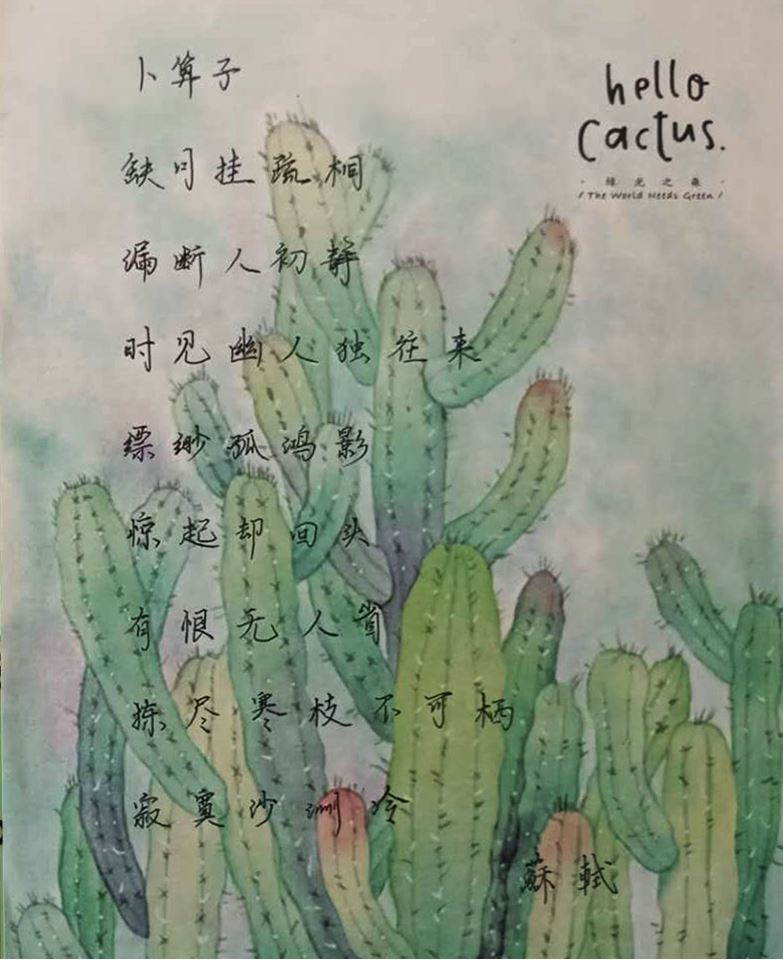 卜算子
缺月挂疏桐
漏断人初静
时见幽人独往来
缥缈孤鸿影
惊起却回头
有恨无人省
拣尽寒枝不可栖
寂寞沙洲冷
蘇軾
hello
cactus.
· 綠光之森 ·
/ The World Needs Green /